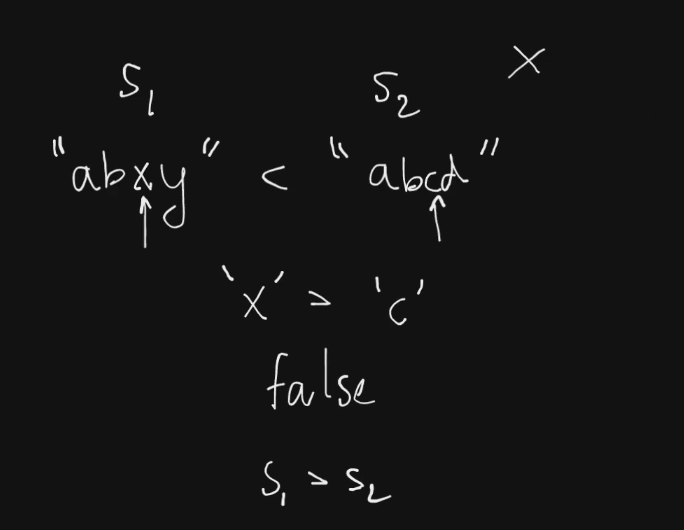 S₁ S₂ X
"abxy" < "abcd"
'x' > 'c'
false
S₁ > S₂